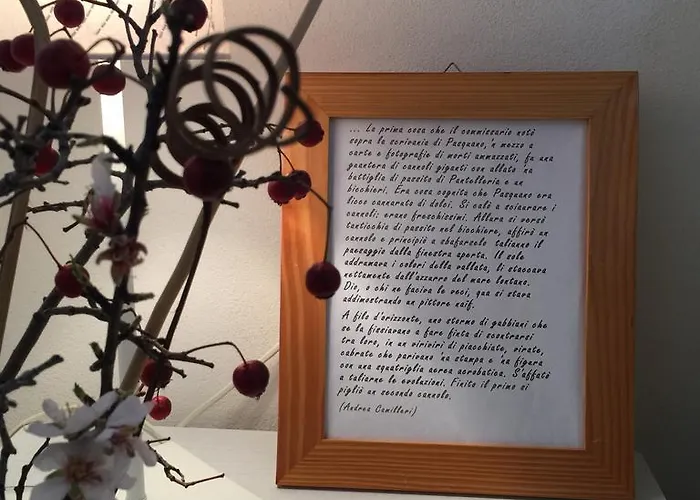 ... La prima cosa che il commissario notò
sopra la scrivania di Pasquano, 'n mezzo a
carte e fotografie di morti ammazzati, fu una
guantera di cannoli giganti con allato 'na
buttiglia di passito di Pantelleria e un
bicchieri. Era cosa cognita che Pasquano era
licco cannaruto di dolci. Si calò a sciaurare i
cannoli: erano freschissimi. Allura si versò
tanticchia di passito nel bicchiere, affirò un
cannolo e principiò a sbafarselo talianno il
paesaggio dalla finestra aperta. Il sole
addrumava i colori della vallata, li staccava
nettamente dall'azzurro del mare lontano.
Dio, o chi ne faciva le veci, qua si stava
addimostrando un pittore naïf.
A filo d'orizzonte, uno stormo di gabbiani che
se la fissiavano a fare finta di scontrarsi
tra loro, in un viriviri di picchiate, virate,
cabrate che parivano 'na stampa e 'na figura
con una squatriglia aerea acrobatica. S'affatò
a taliarne le evoluzioni. Finito il primo si
pigliò un secondo cannolo.
(Andrea Camilleri)